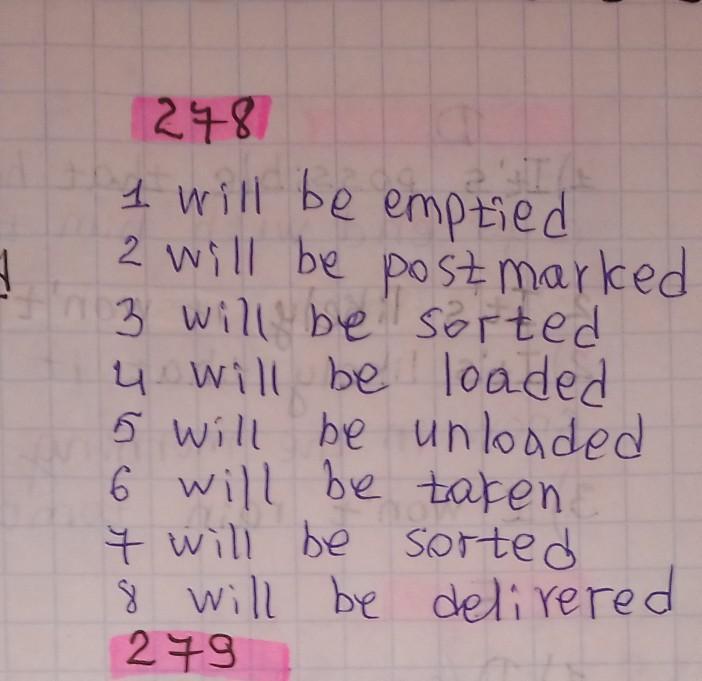 278
1 will be emptied
2 will be postmarked
3 will be sorted
4 will be loaded
5 will be unloaded
6 will be taken
7 will be sorted
8 will be delivered
279